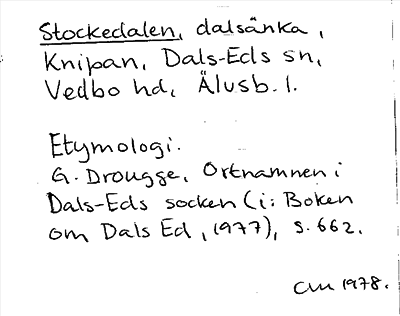 Stockedalen, dalsänka,
Knipan, Dals-Eds sn,
Vedbo hd, Älvsb. l.
Etymologi.
G. Drougge, Ortnamnen i
Dals-Eds socken (i: Boken
om Dals Ed, 1977), s. 662.
CM 1978.